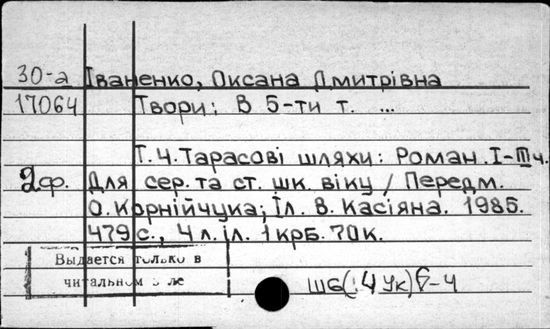 30-а Іваненко, Оксана Дмитрівна
17064 Твори: В 5-ти т. ...
Т.4. Тарасові шляхи: Роман. І-ІІІ ч.
2ф. Для сер. та ст. шк. віку / Передм.
О. Корнійчука; Іл. В. Касіяна. 1985.
479 с., 4 л. іл. 1 крб. 70 к.
Выдается только в
читальном зале
Ш6(:4Ук)6-4